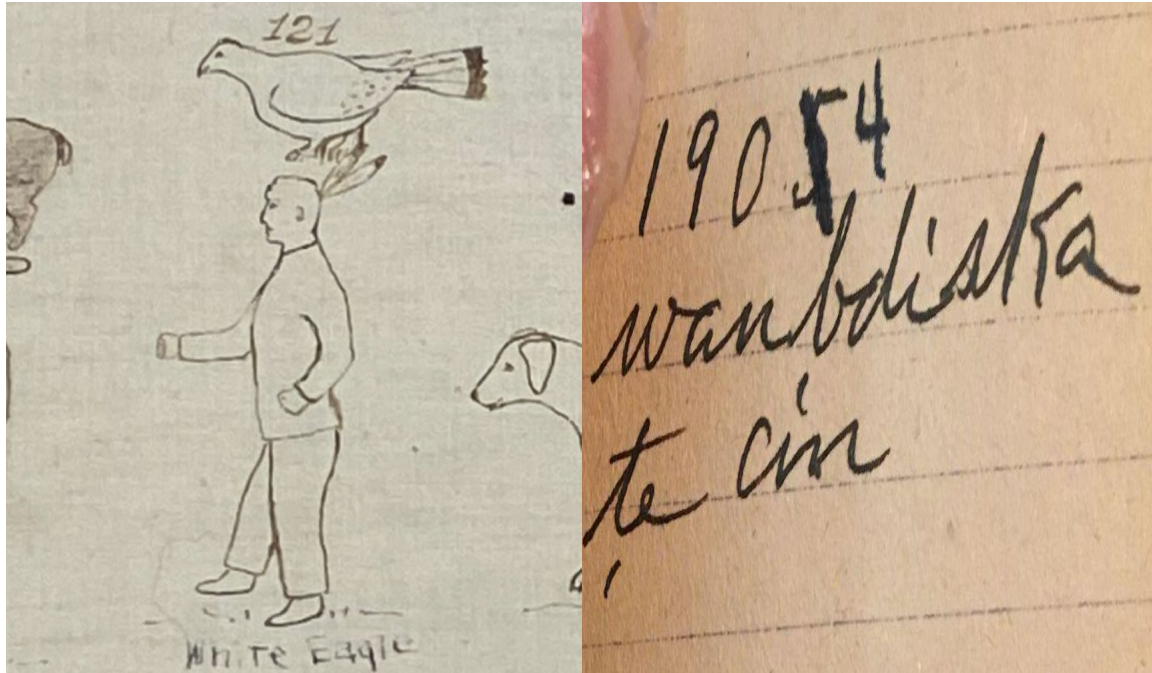 121
White Eagle
1904
wanbdiska
te cin